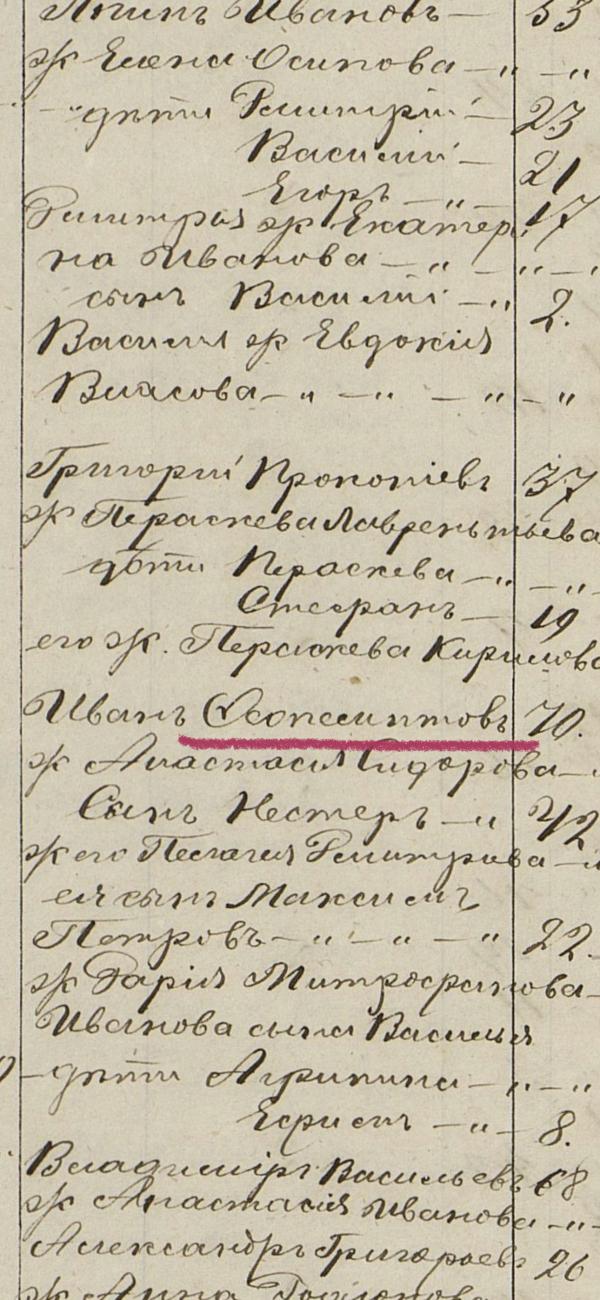 Ивановъ — 53
ж Елена Осипова — „ — „
— „ дѣти Димитрій — 23
Василій — 21
Егоръ — „ — 17
Димитрія ж Екатери
на Иванова — „ — „ —
сынъ Василій — „ 2.
Василія ж Евдокія
Власова — „ — „ — „ — „
Григорій Прокопіевъ 37
ж Параскева Лаврентьева
дѣти Параскева — „ — „
Стефанъ — 19
его ж. Параскева Кирилова
Иванъ 70.
ж Анастасія Сидорова —
Сынъ Нестеръ — „ 42
ж его Пелагея Димитріева —
ея сынъ Максимъ
Петровъ — „ — „ — „ 22.
ж Дарія Митрофанова —
Иванова сына Василья
— дѣти Агрипина — „ — „
Ефимъ — „ — 8.
Владиміръ Васильевъ 68
ж Анастасія Иванова — „ —
Александръ Григорьевъ 26
ж Анна